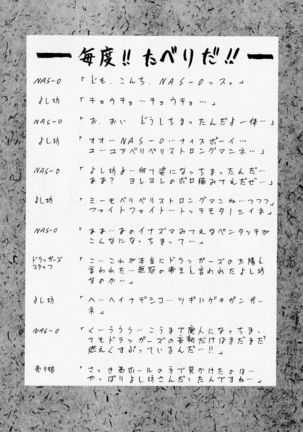 毎度!! たべりだ!!
NAS-O 「ども、こんち、NAS-Oっス。」
よし坊 「チョウチョ…チョウチョ…」
NAS-O 「お、おい どうしちまったんだよ一体…」
よし坊 「オオ…NAS-O…ナイスボーイ…
ユ…ユアベリベリストロングマンネ…」
NAS-O 「よし坊よ…何て姿になっちまったんだ…
ああ? ヨレヨレのボロ猫みてえだぜ…」
よし坊 「ミーモベリベリストロングマンね…フフフ
ファイトファイト…トッテモターノシイネ」
NAS-O 「ああ…あのイナズマみてえなペンタッチが
こんなになっちまって…」
ドラッガーズ
スタッフ 「こ…これが本当にドラッガーズの太陽と
言われた…無冠の帝王と言われたよし坊
なのか…」
よし坊 「へ…ヘイナデシコ…ツギハゲキガンガー
ネ」
NAS-O 「くーううう…こうまで廃人になっちま
てもドラッガーズの妄執だけはまだまだ
燃えくすぶっているんだ…!!」
売り子 「さっき西ホールのうで見かけたのは…
やっぱりよし坊さんだったんですね…」